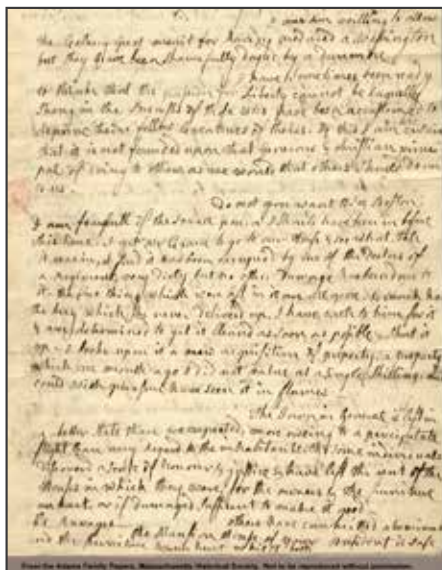 I am willing to allow
the Colony great merit for having produced a Washington
but they have been shamefully duped by a Dunmore
I have sometimes been ready
to think that the passion for Liberty cannot be Eaquelly
Strong in the Breasts of those who have been accustomed to
deprive their fellow Creatures of theirs. Of this I am certain
that it is not founded upon that generous & christian princi
pal of doing to others as we would that others should do un
to us.
Do not you want to see Boston
I am fearfull of the small pox, or I should have been in before
this time. I got mr Crane to go to our House & see what state
it was in, I find it has been occupied by one of the Doctors of
a Regiment, very dirty but no other Damage has been done to
it. the few things which were left in it are all gone. Cranch has
the key which he never deliverd up. I have wrote to him for it
& am determined to get it cleand as soon as possible & shut it
up. I look upon it a new acquisition of property, a property
which one month ago I did not value at a single Shilling, and
could with pleasure have seen it in flames
The Town in General is left in
a better state than we expected, more oweing to a percipitate
flight than any Regard to the inhabitants, tho some individuals
discoverd a sense of honour & justice & have left the rent of the
Houses in which they were, for the owners & the furniture
unhurt, or if damaged sufficent to make it good
others have committed abominable
Ravages the Mansion House of your President is safe
and the furniture unhurt
From the Adams Family Papers, Massachusetts Historical Society. Not to be reproduced without permission.